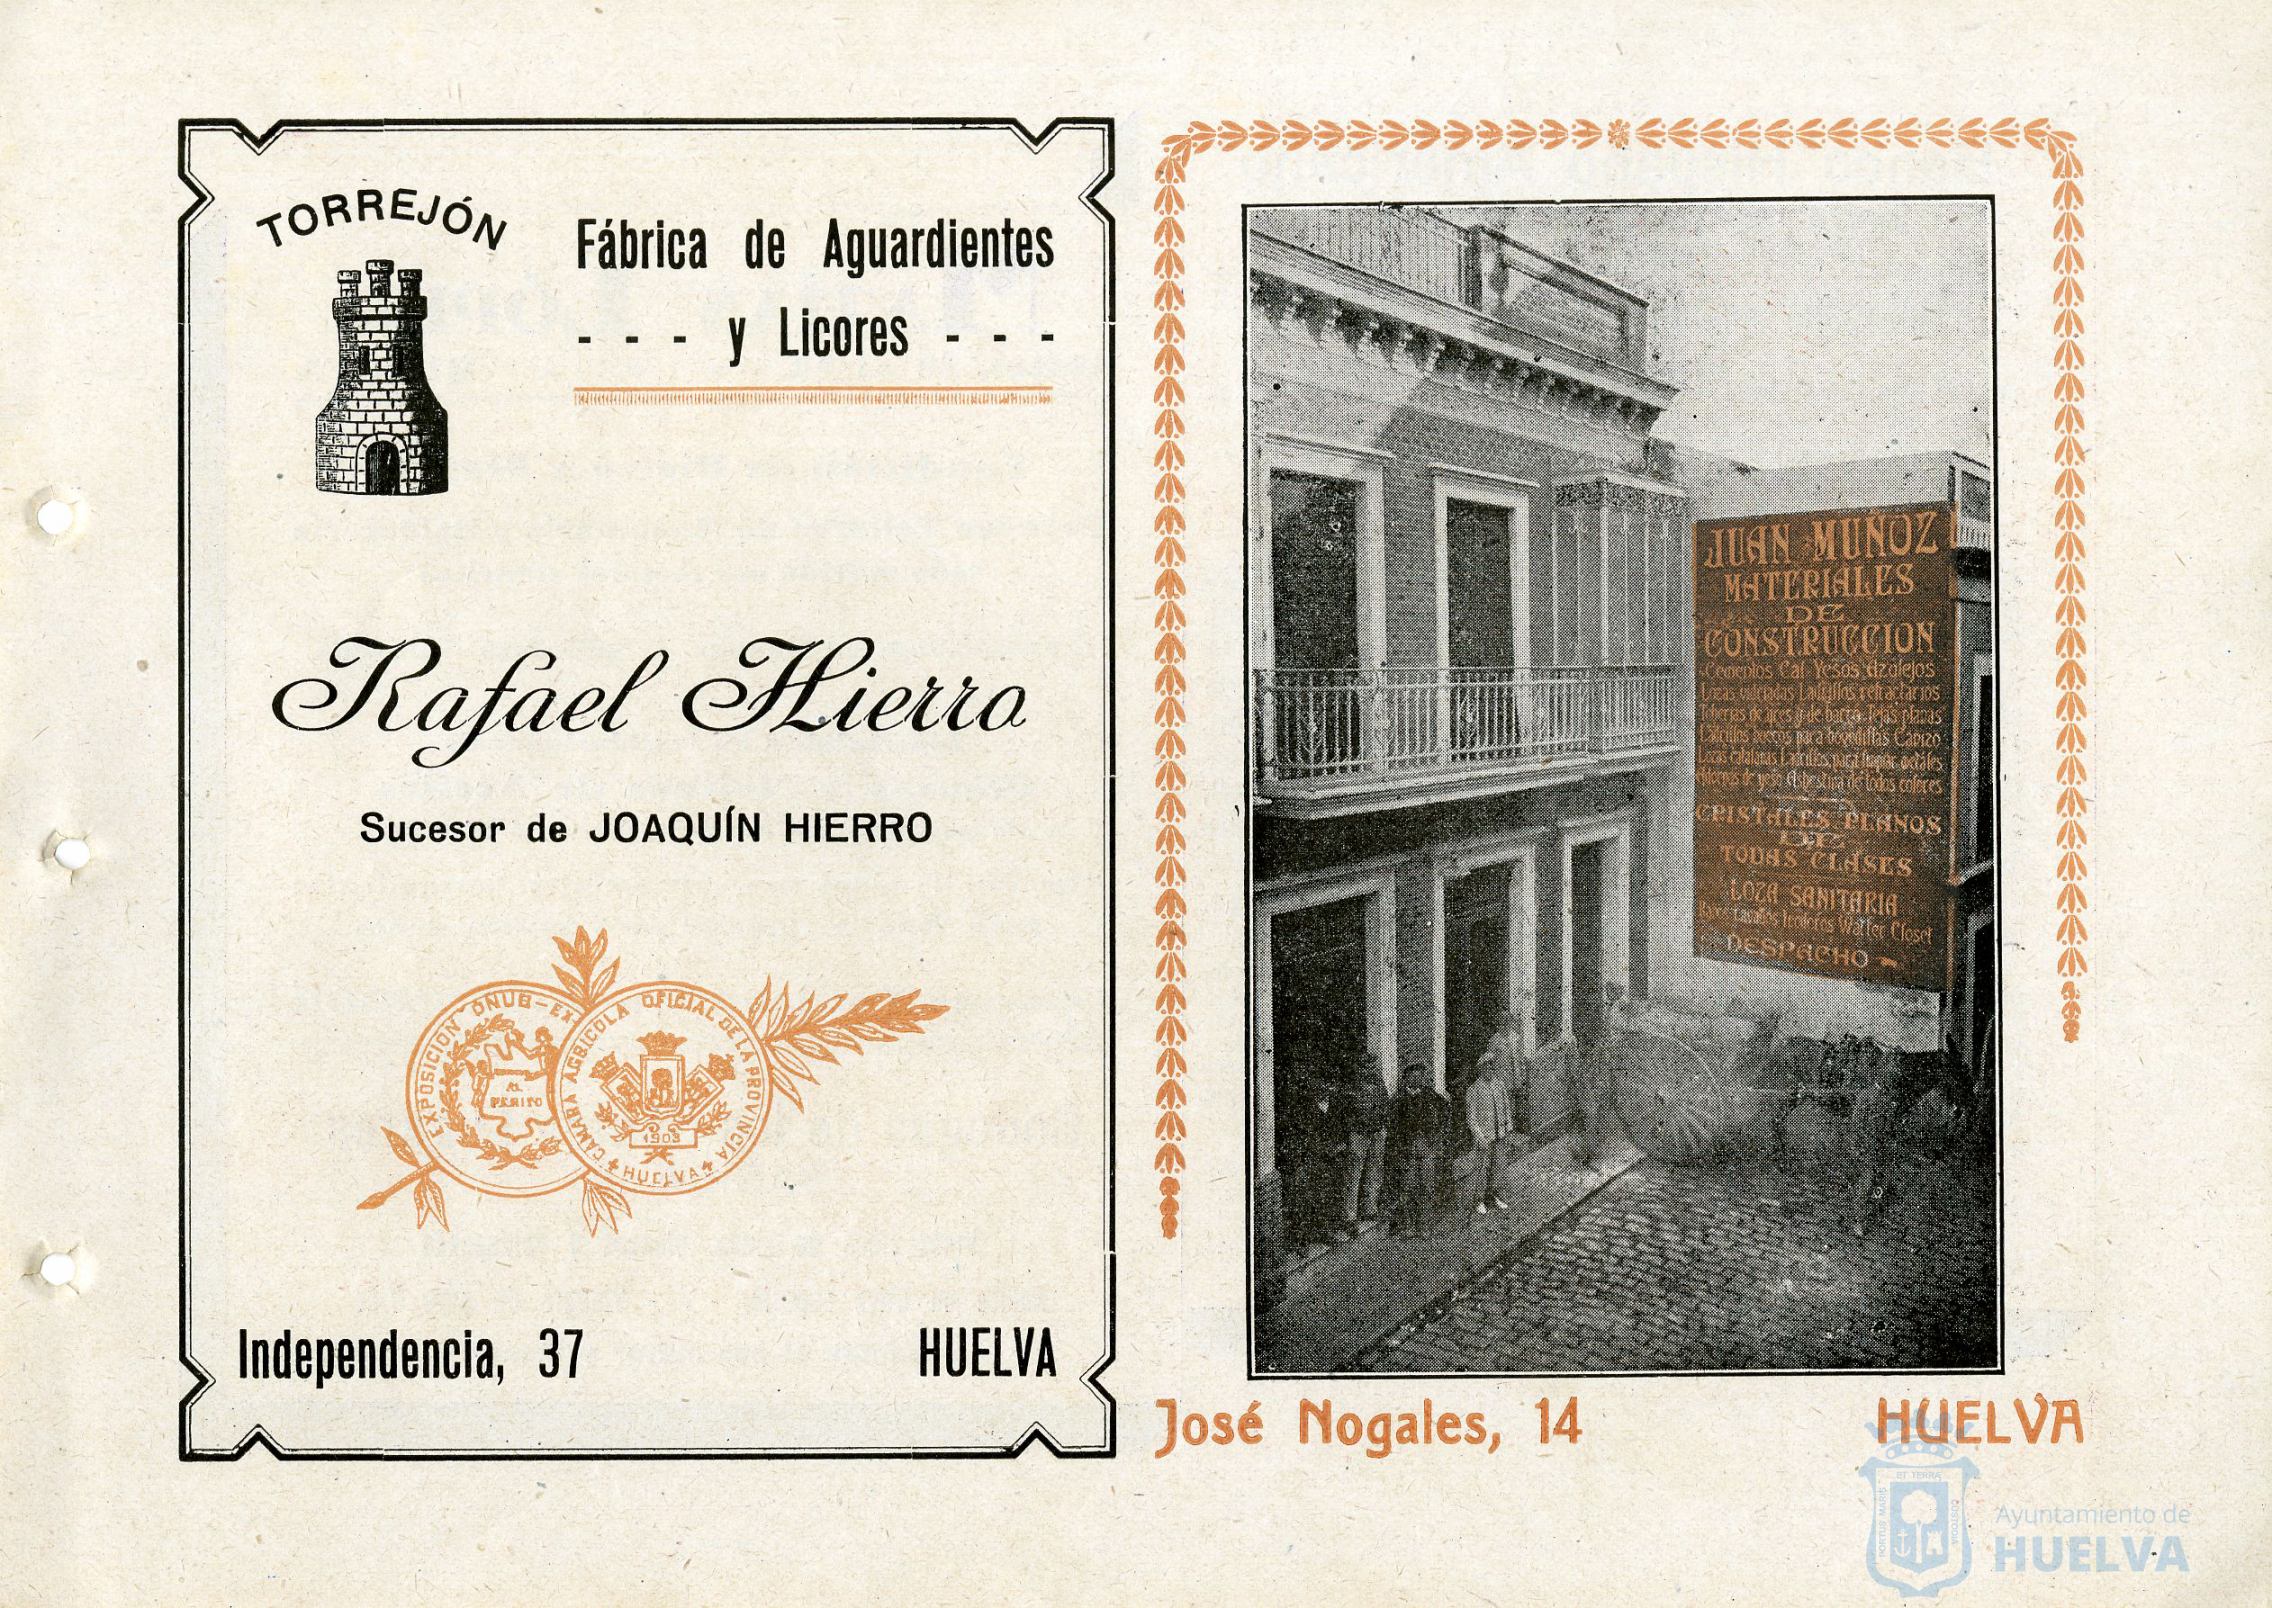 TORREJÓN
Fábrica de Aguardientes
- - - y Licores - - -
Rafael Hierro
Sucesor de JOAQUÍN HIERRO
EXPOSICION ONUB-EX
AL
MERITO
CAMARA AGRICOLA OFICIAL DE LA PROVINCIA
1903
HUELVA
Independencia, 37 HUELVA
JUAN MUÑOZ
MATERIALES
DE
CONSTRUCCION
Cementos Cal Yesos Azulejos
Lozas vidriadas Ladrillos refractarios
Tuberias de gres y de barro Tejas planas
Ladrillos huecos para bovedillas Cañizo
Losas Catalanas Ladrillos para
de yeso de todos colores
CRISTALES PLANOS
DE
TODAS CLASES
LOZA SANITARIA
Watter Closet
DESPACHO
José Nogales, 14 HUELVA
PORTUS MARIS ET TERRA CUSTODIA
Ayuntamiento de
HUELVA